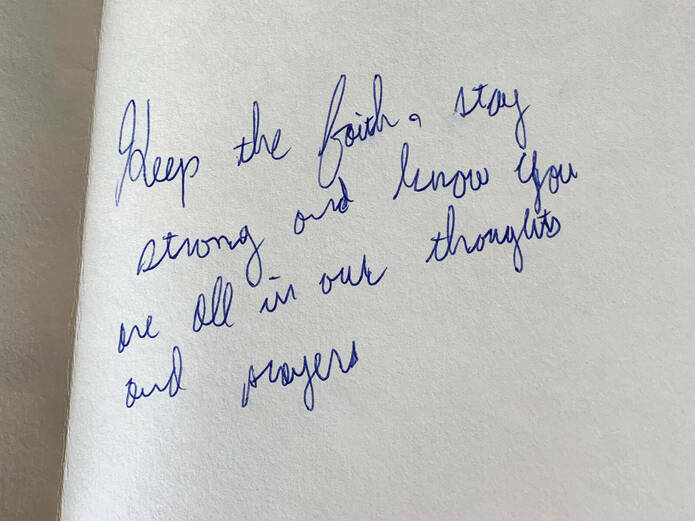 Keep the faith, stay
strong and know you
are all in our thoughts
and prayers